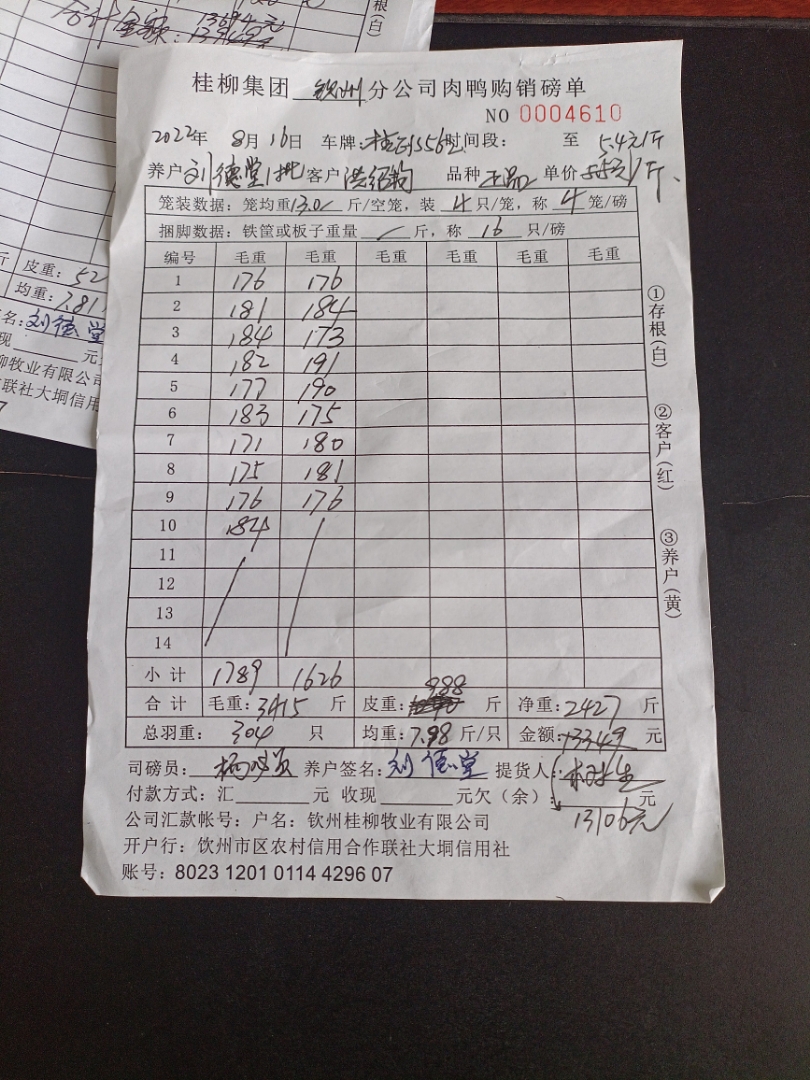 合计金额: 13694元
根(白)
斤 皮重: 52
均重: 7.81
名: 刘德堂
现 元
柳牧业有限公司
联社大垌信用
7
桂柳集团 钦州 分公司肉鸭购销磅单
NO 0004610
2022年 8月16日 车牌: 时间段: 至 5.4元/斤
养户 刘德堂1批 客户 洪绍钧 品种 王品 单价 5.5元/斤
笼装数据: 笼均重 13.0 斤/空笼, 装 4 只/笼, 称 4 笼/磅
捆脚数据: 铁筐或板子重量 / 斤, 称 16 只/磅
编号 毛重 毛重 毛重 毛重 毛重 毛重
1 176 176
2 181 184
3 184 173
4 182 191
5 177 190
6 183 175
7 171 180
8 175 181
9 176 176
10 184
11
12
13
14
小计 1789 1626
合计 毛重: 3415 斤 皮重: 988 斤 净重: 2427 斤
总羽重: 304 只 均重: 7.98 斤/只 金额: 13349 元
司磅员: 养户签名: 刘德堂 提货人:
付款方式: 汇 元 收现 元欠(余): 元
13106元
公司汇款帐号: 户名: 钦州桂柳牧业有限公司
开户行: 钦州市区农村信用合作联社大垌信用社
账号: 8023 1201 0114 4296 07
①存根(白)
②客户(红)
③养户(黄)